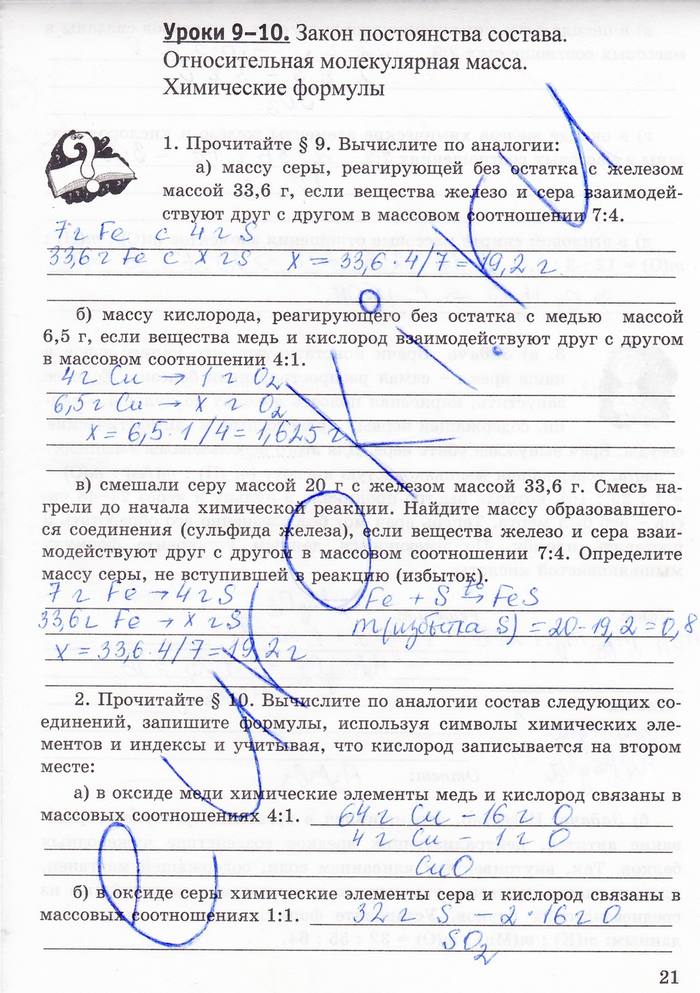 Уроки 9–10. Закон постоянства состава.
Относительная молекулярная масса.
Химические формулы
1. Прочитайте § 9. Вычислите по аналогии:
а) массу серы, реагирующей без остатка с железом
массой 33,6 г, если вещества железо и сера взаимодей-
ствуют друг с другом в массовом соотношении 7:4.
7 г Fe с 4 г S
33,6 г Fe с x г S x = 33,6 · 4/7 = 19,2 г
б) массу кислорода, реагирующего без остатка с медью массой
6,5 г, если вещества медь и кислород взаимодействуют друг с другом
в массовом соотношении 4:1.
4 г Cu → 1 г O₂
6,5 г Cu → x г O₂
x = 6,5 · 1/4 = 1,625 г
в) смешали серу массой 20 г с железом массой 33,6 г. Смесь на-
грели до начала химической реакции. Найдите массу образовавшего-
ся соединения (сульфида железа), если вещества железо и сера взаи-
модействуют друг с другом в массовом соотношении 7:4. Определите
массу серы, не вступившей в реакцию (избыток).
7 г Fe → 4 г S Fe + S t° → FeS
33,6 г Fe → x г S m(избытка S) = 20 - 19,2 = 0,8
x = 33,6 · 4/7 = 19,2 г
2. Прочитайте § 10. Вычислите по аналогии состав следующих со-
единений, запишите формулы, используя символы химических эле-
ментов и индексы и учитывая, что кислород записывается на втором
месте:
а) в оксиде меди химические элементы медь и кислород связаны в
массовых соотношениях 4:1. 64 г Cu – 16 г O
4 г Cu – 1 г O
CuO
б) в оксиде серы химические элементы сера и кислород связаны в
массовых соотношениях 1:1. 32 г S – 2 · 16 г O
SO₂
21